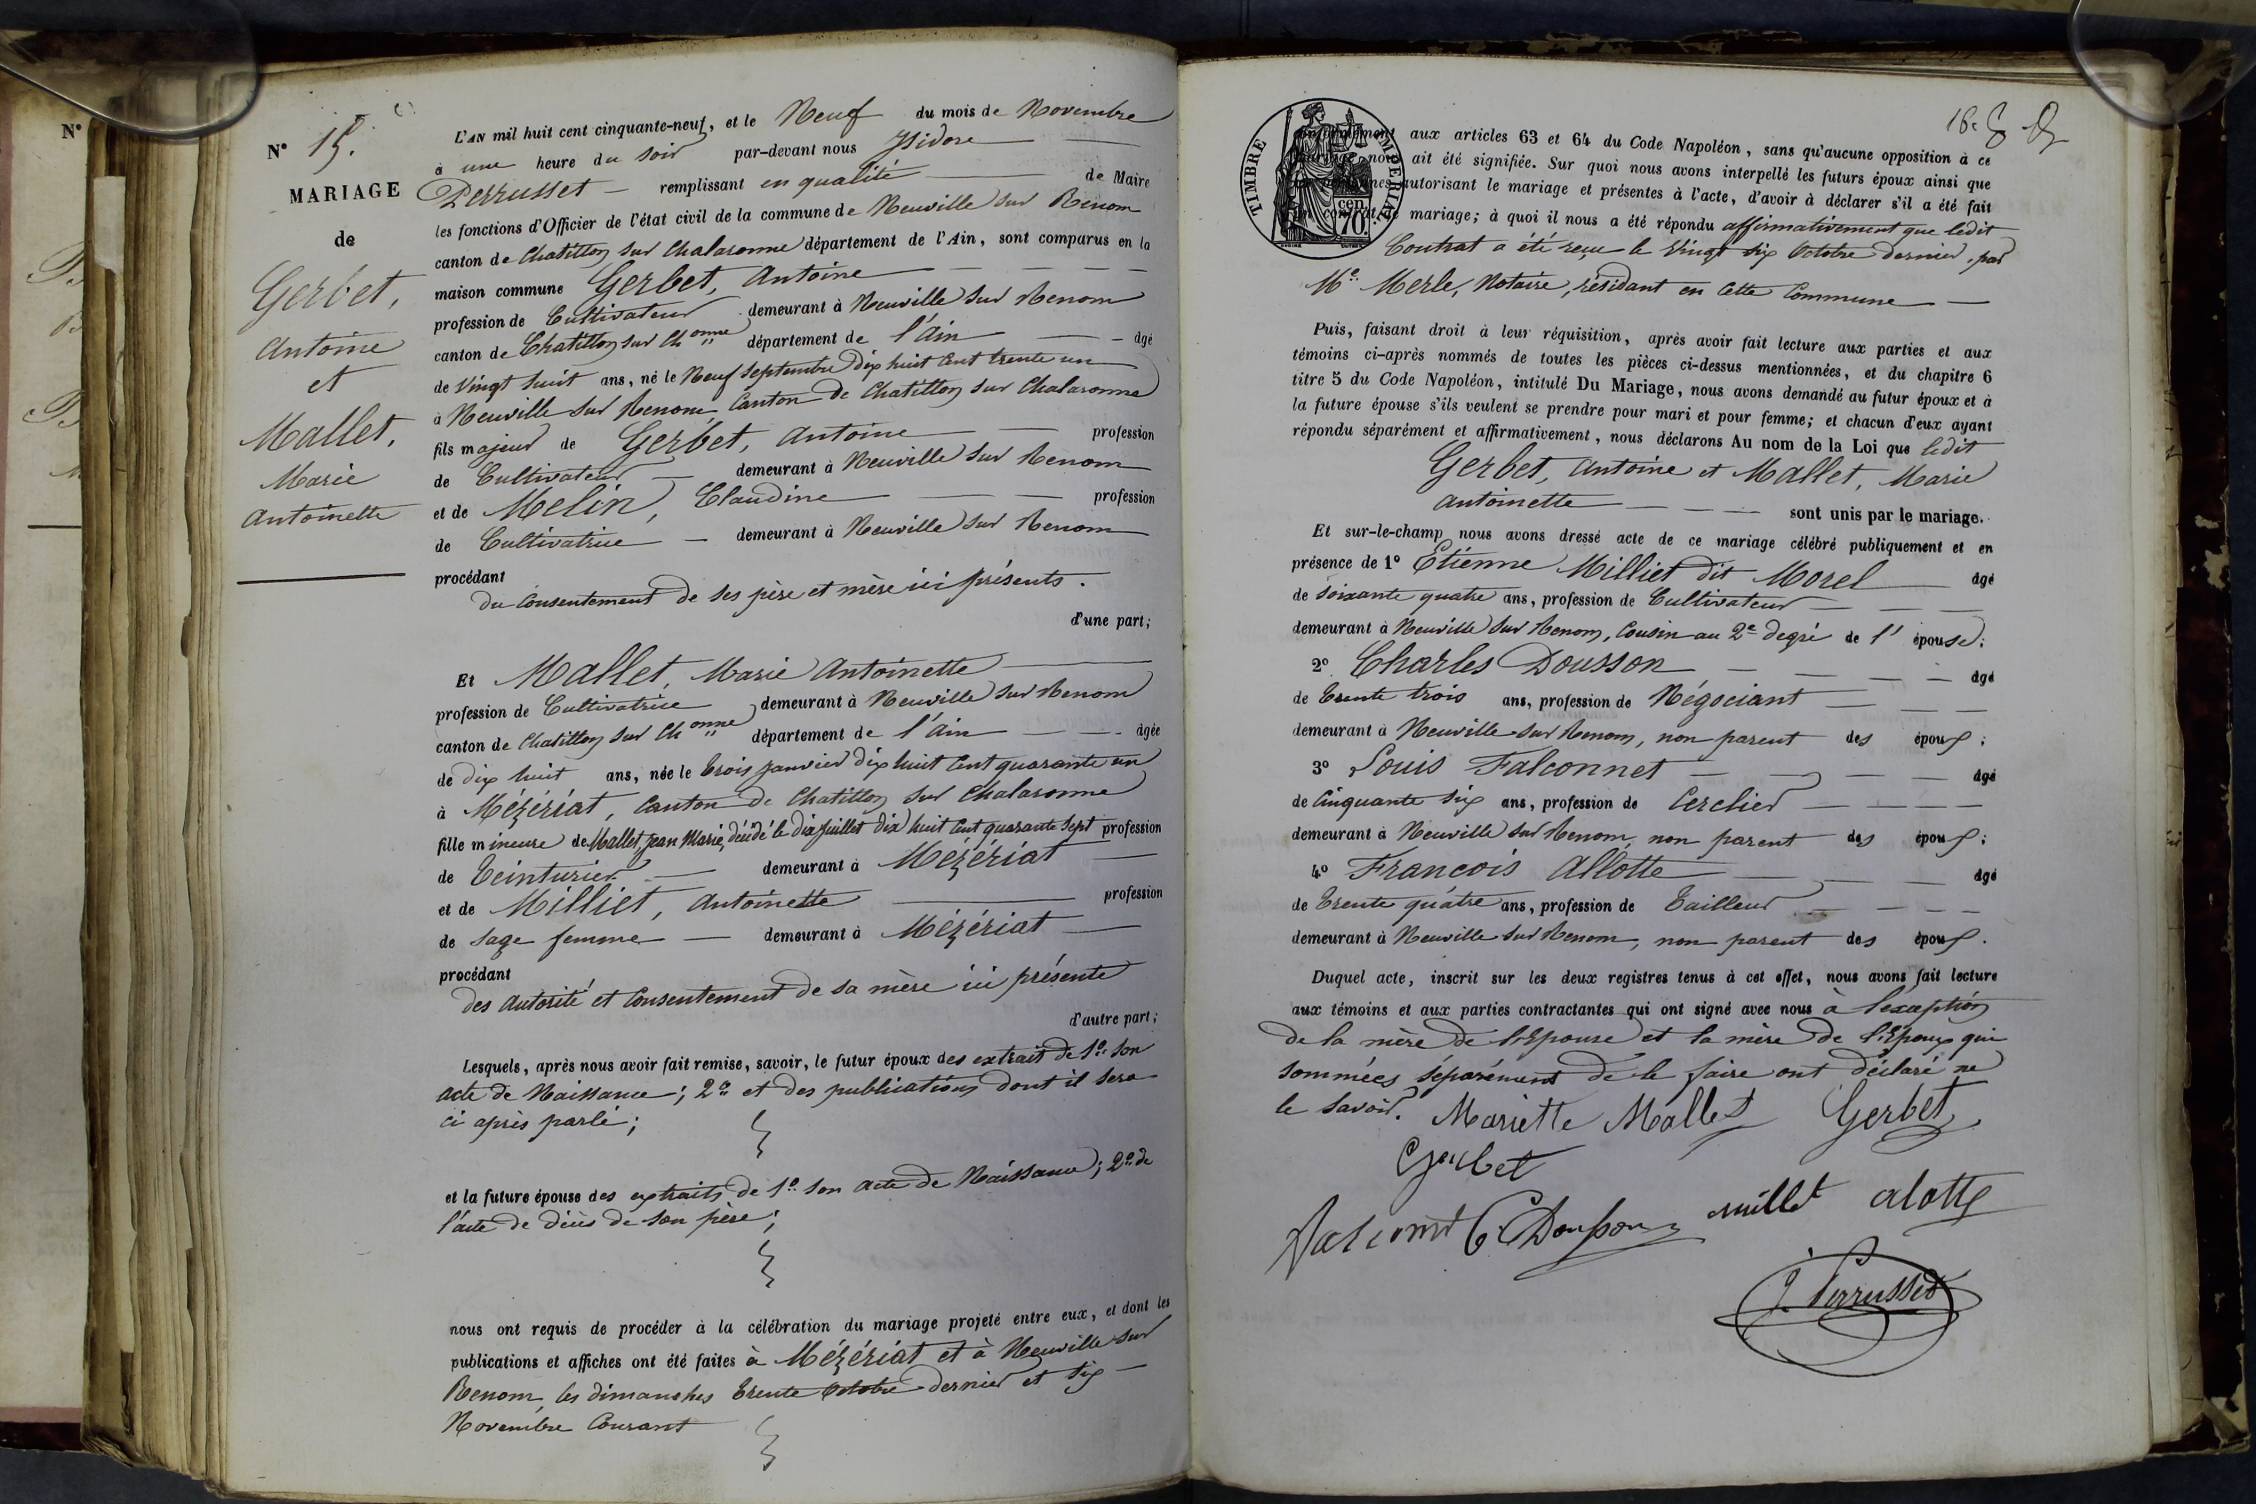 N°
N° 15.
MARIAGE
de
Gerbet,
Antoine
et
Mallet,
Marie
Antoinette
L'AN mil huit cent cinquante-neuf, et le Neuf du mois de Novembre
à une heure du soir par-devant nous Isidore
Perrusset — remplissant en qualité — de Maire
les fonctions d'Officier de l'état civil de la commune de Neuville sur Renom
canton de Chatillon sur Chalaronne département de l'Ain, sont comparus en la
maison commune Gerbet, Antoine
profession de Cultivateur demeurant à Neuville sur Renom
canton de Chatillon sur Chonne département de l'Ain — âgé
de Vingt huit ans, né le Neuf Septembre dix huit cent trente un
à Neuville sur Renom, Canton de Chatillon sur Chalaronne
fils majeur de Gerbet, Antoine — profession
de Cultivateur — demeurant à Neuville sur Renom
et de Melin, Claudine — profession
de Cultivatrice — demeurant à Neuville sur Renom
procédant
du Consentement de ses père et mère ici présents.
d'une part;
Et Mallet, Marie Antoinette
profession de Cultivatrice demeurant à Neuville sur Renom
canton de Chatillon sur Chonne département de l'Ain — âgée
de dix huit ans, née le trois Janvier dix huit cent quarante un
à Mézériat, Canton de Chatillon sur Chalaronne
fille mineure de Mallet, Jean Marie, décédé le dix Juillet dix huit cent quarante sept profession
de Teinturier — demeurant à Mézériat —
et de Milliet, Antoinette — profession
de sage femme — demeurant à Mézériat —
procédant
des autorité et Consentement de sa mère ici présente
d'autre part;
Lesquels, après nous avoir fait remise, savoir, le futur époux des extrait de 1° son
acte de Naissance; 2° et des publications dont il sera
ci après parlé;
et la future épouse des extraits de 1° son acte de Naissance; 2° de
l'acte de décès de son père;
nous ont requis de procéder à la célébration du mariage projeté entre eux, et dont les
publications et affiches ont été faites à Mézériat et à Neuville sur
Renom, les dimanches trente Octobre dernier et six —
Novembre Courant
16
TIMBRE IMPÉRIAL
cen. 70.
conformément aux articles 63 et 64 du Code Napoléon, sans qu'aucune opposition à ce
mariage nous ait été signifiée. Sur quoi nous avons interpellé les futurs époux ainsi que
les personnes autorisant le mariage et présentes à l'acte, d'avoir à déclarer s'il a été fait
un contrat de mariage; à quoi il nous a été répondu affirmativement que ledit
Contrat a été reçu le Vingt six Octobre dernier, par
Me Merle, Notaire, résidant en cette Commune —
Puis, faisant droit à leur réquisition, après avoir fait lecture aux parties et aux
témoins ci-après nommés de toutes les pièces ci-dessus mentionnées, et du chapitre 6
titre 5 du Code Napoléon, intitulé Du Mariage, nous avons demandé au futur époux et à
la future épouse s'ils veulent se prendre pour mari et pour femme; et chacun d'eux ayant
répondu séparément et affirmativement, nous déclarons Au nom de la Loi que ledit
Gerbet, Antoine et Mallet, Marie
Antoinette — sont unis par le mariage.
Et sur-le-champ nous avons dressé acte de ce mariage célébré publiquement et en
présence de 1° Etienne Milliet dit Morel — âgé
de soixante quatre ans, profession de Cultivateur
demeurant à Neuville sur Renom, Cousin au 2e degré de l'épouse;
2° Charles Dousson — âgé
de trente trois ans, profession de Négociant
demeurant à Neuville sur Renom, non parent des époux;
3° Louis Falconnet — âgé
de Cinquante six ans, profession de Cerclier
demeurant à Neuville sur Renom, non parent des époux;
4° François Allotte — âgé
de trente quatre ans, profession de Tailleur
demeurant à Neuville sur Renom, non parent des époux.
Duquel acte, inscrit sur les deux registres tenus à cet effet, nous avons fait lecture
aux témoins et aux parties contractantes qui ont signé avec nous à l'exception
de la mère de l'Epouse et la mère de l'Epoux qui
sommées séparément de le faire ont déclaré ne
le savoir. Mariette Mallet Gerbet
Gerbet
Falconnet C. Dousson millet alotte
J. Perrusset